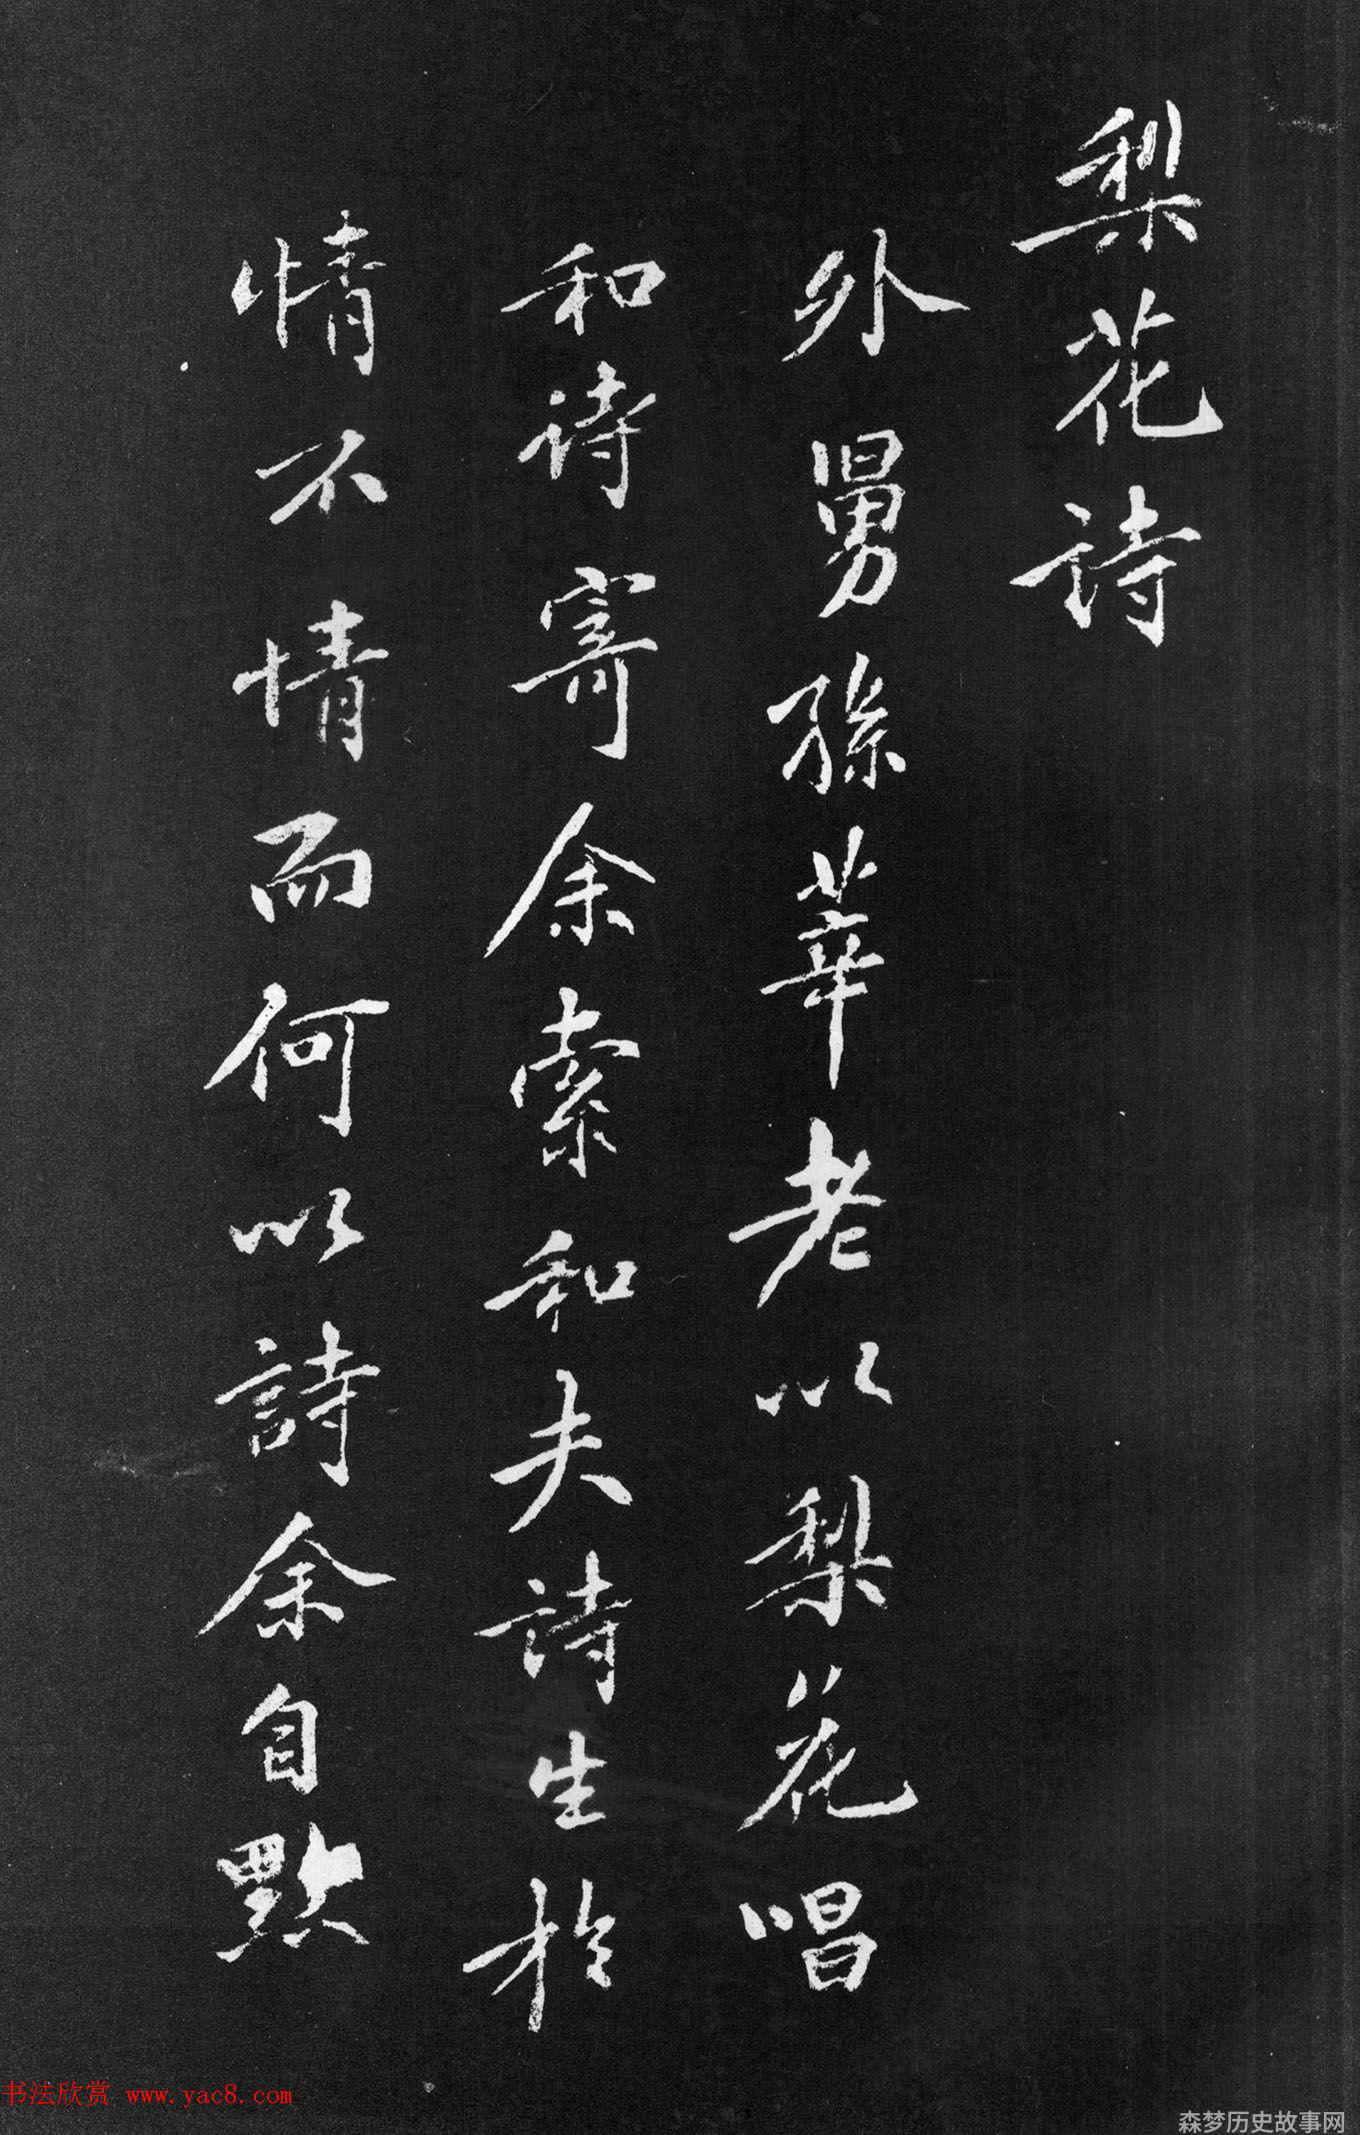 梨花詩
外舅孫莘老以梨花唱
和詩寄余索和夫詩生於
情不情而何以詩余自點
书法欣赏 www.yac8.com
森梦历史故事网